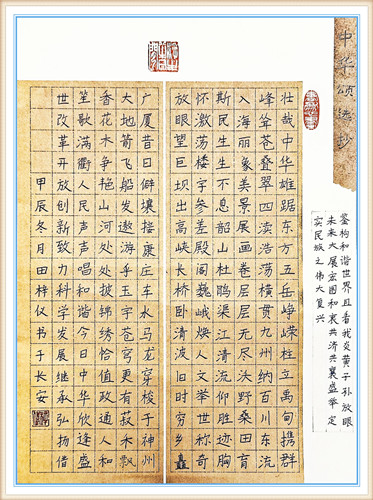 中华颂选抄
壮哉中华雄踞东方五岳峥嵘柱立禹甸携群
峰耸苍叠翠四渎浩荡横贯九州纳百川东流
入海丽象美景展画卷层层无尽沃野桑田育
斯民生生不息韶山杜鹃渠江清流仰胜迹胸
怀激荡楼宇参差殿阁巍峨焕人文举世称奇
放眼望巨坝出高峡长桥卧清波旧时穷乡矗
广厦昔日僻壤接康庄车水马龙穿梭于神州
大地箭飞船发遨游乎玉宇苍穹更有菽木飘
香花木争艳山河处处披锦绣恰值政通人和
笙歌满衢人民声声唱和谐今日中华欣逢盛
世改革开放创新致力科学发展继承弘扬借
甲辰冬月田梓仪书于长安
鉴构和谐世界且看我炎黄子孙放眼
未来大展宏图和衷共济共襄盛举定
实民族之伟大复兴